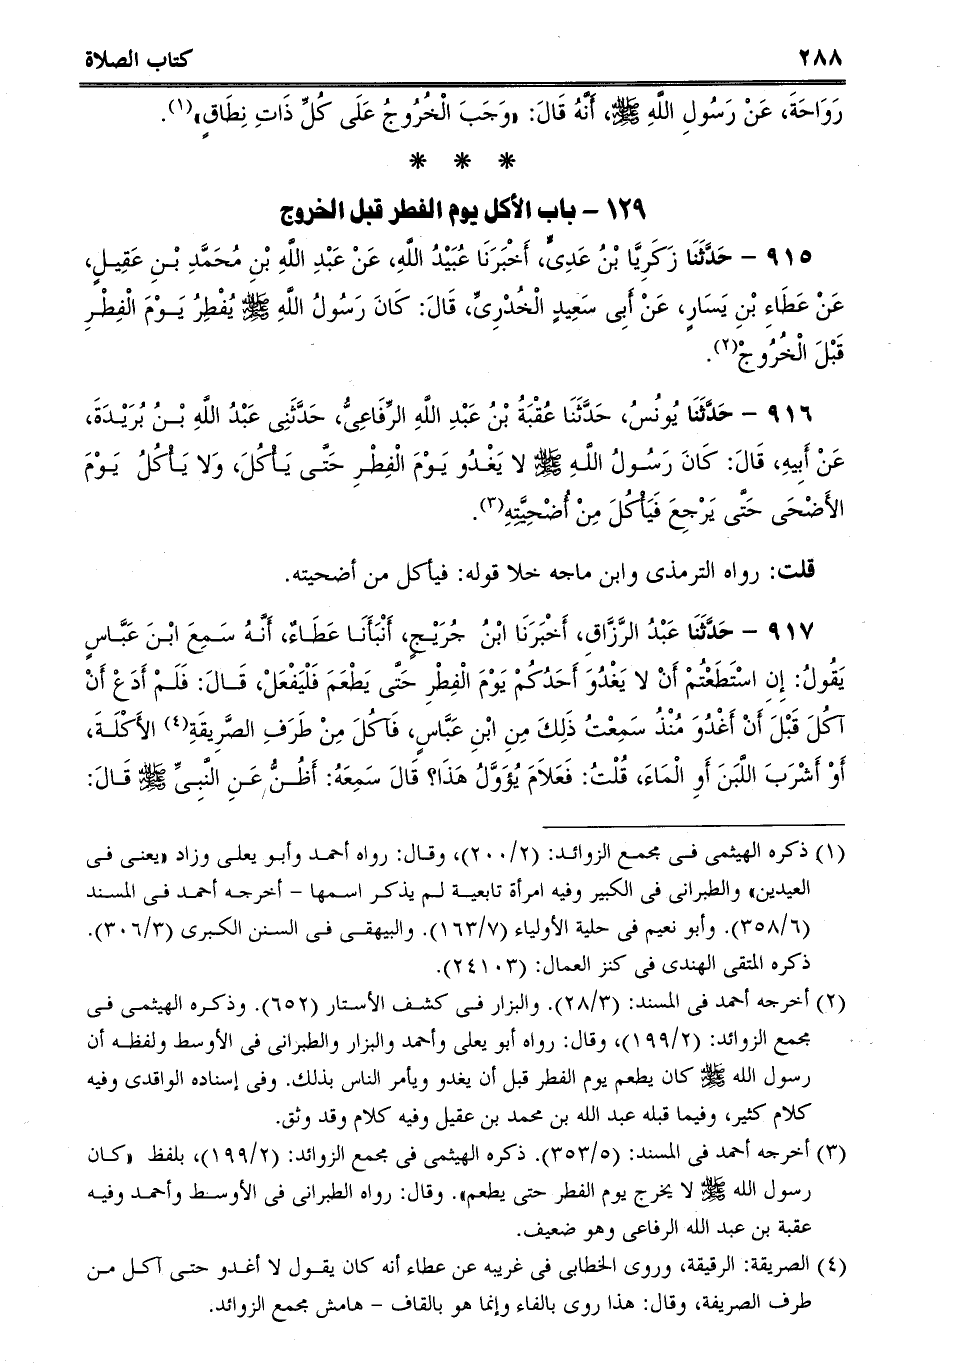 ٢٨٨ كتاب الصلاة
رَوَاحَةَ، عَنْ رَسُولِ اللَّهِ ﷺ، أَنَّهُ قَالَ: «وَجَبَ الْخُرُوجُ عَلَى كُلِّ ذَاتِ نِطَاقٍ»(١).
* * *
١٢٩ – باب الأكل يوم الفطر قبل الخروج
٩١٥ – حَدَّثَنَا زَكَرِيَّا بْنُ عَدِىٍّ، أَخْبَرَنَا عُبَيْدُ اللَّهِ، عَنْ عَبْدِ اللَّهِ بْنِ مُحَمَّدِ بْنِ عَقِيلٍ،
عَنْ عَطَاءِ بْنِ يَسَارٍ، عَنْ أَبِى سَعِيدٍ الْخُدْرِىِّ، قَالَ: كَانَ رَسُولُ اللَّهِ ﷺ يُفْطِرُ يَوْمَ الْفِطْرِ
قَبْلَ الْخُرُوجْ(٢).
٩١٦ – حَدَّثَنَا يُونُسُ، حَدَّثَنَا عُقْبَةُ بْنُ عَبْدِ اللَّهِ الرِّفَاعِىُّ، حَدَّثَنِى عَبْدُ اللَّهِ بْنُ بُرَيْدَةَ،
عَنْ أَبِيهِ، قَالَ: كَانَ رَسُولُ اللَّهِ ﷺ لا يَغْدُو يَوْمَ الْفِطْرِ حَتَّى يَأْكُلَ، وَلا يَأْكُلُ يَوْمَ
الأَضْحَى حَتَّى يَرْجِعَ فَيَأْكُلَ مِنْ أُضْحِيَّتِهِ(٣).
قلت: رواه الترمذى وابن ماجه خلا قوله: فيأكل من أضحيته.
٩١٧ – حَدَّثَنَا عَبْدُ الرَّزَّاقِ، أَخْبَرَنَا ابْنُ جُرَيْجٍ، أَنْبَأَنَا عَطَاءٌ، أَنَّهُ سَمِعَ ابْنَ عَبَّاسٍ
يَقُولُ: إِنِ اسْتَطَعْتُمْ أَنْ لا يَغْدُوَ أَحَدُكُمْ يَوْمَ الْفِطْرِ حَتَّى يَطْعَمَ فَلْيَفْعَلْ، قَالَ: فَلَمْ أَدَعْ أَنْ
آكُلَ قَبْلَ أَنْ أَغْدُوَ مُنْذُ سَمِعْتُ ذَلِكَ مِنِ ابْنِ عَبَّاسٍ، فَآكُلَ مِنْ طَرَفِ الصَّرِيقَةِ(٤) الأَكْلَةَ،
أَوْ أَشْرَبَ اللَّبَنَ أَوِ الْمَاءَ، قُلْتُ: فَعَلامَ يُؤَوَّلُ هَذَا؟ قَالَ سَمِعَهُ: أَظُنُّ عَنِ النَّبِىِّ ﷺ قَالَ:
(١) ذكره الهيثمى فى مجمع الزوائد: (٢/٢٠٠)، وقال: رواه أحمد وأبو يعلى وزاد «يعنى فى
العيدين» والطبرانى فى الكبير وفيه امرأة تابعية لم يذكر اسمها – أخرجه أحمد فى المسند
(٦/٣٥٨). وأبو نعيم فى حلية الأولياء (٧/١٦٣). والبيهقى فى السنن الكبرى (٣/٣٠٦).
ذكره المتقى الهندى فى كنز العمال: (٢٤١٠٣).
(٢) أخرجه أحمد فى المسند: (٣/٢٨). والبزار فى كشف الأستار (٦٥٢). وذكره الهيثمى فى
مجمع الزوائد: (٢/١٩٩)، وقال: رواه أبو يعلى وأحمد والبزار والطبرانى فى الأوسط ولفظه أن
رسول الله ﷺ كان يطعم يوم الفطر قبل أن يغدو ويأمر الناس بذلك. وفى إسناده الواقدى وفيه
كلام كثير، وفيما قبله عبد الله بن محمد بن عقيل وفيه كلام وقد وثق.
(٣) أخرجه أحمد فى المسند: (٥/٣٥٣). ذكره الهيثمى فى مجمع الزوائد: (٢/١٩٩)، بلفظ «كان
رسول الله ﷺ لا يخرج يوم الفطر حتى يطعم». وقال: رواه الطبرانى فى الأوسط وأحمد وفيه
عقبة بن عبد الله الرفاعى وهو ضعيف.
(٤) الصريقة: الرقيقة، وروى الخطابى فى غريبه عن عطاء أنه كان يقول لا أغدو حتى آكل من
طرف الصريفة، وقال: هذا روى بالفاء وإنما هو بالقاف – هامش مجمع الزوائد.